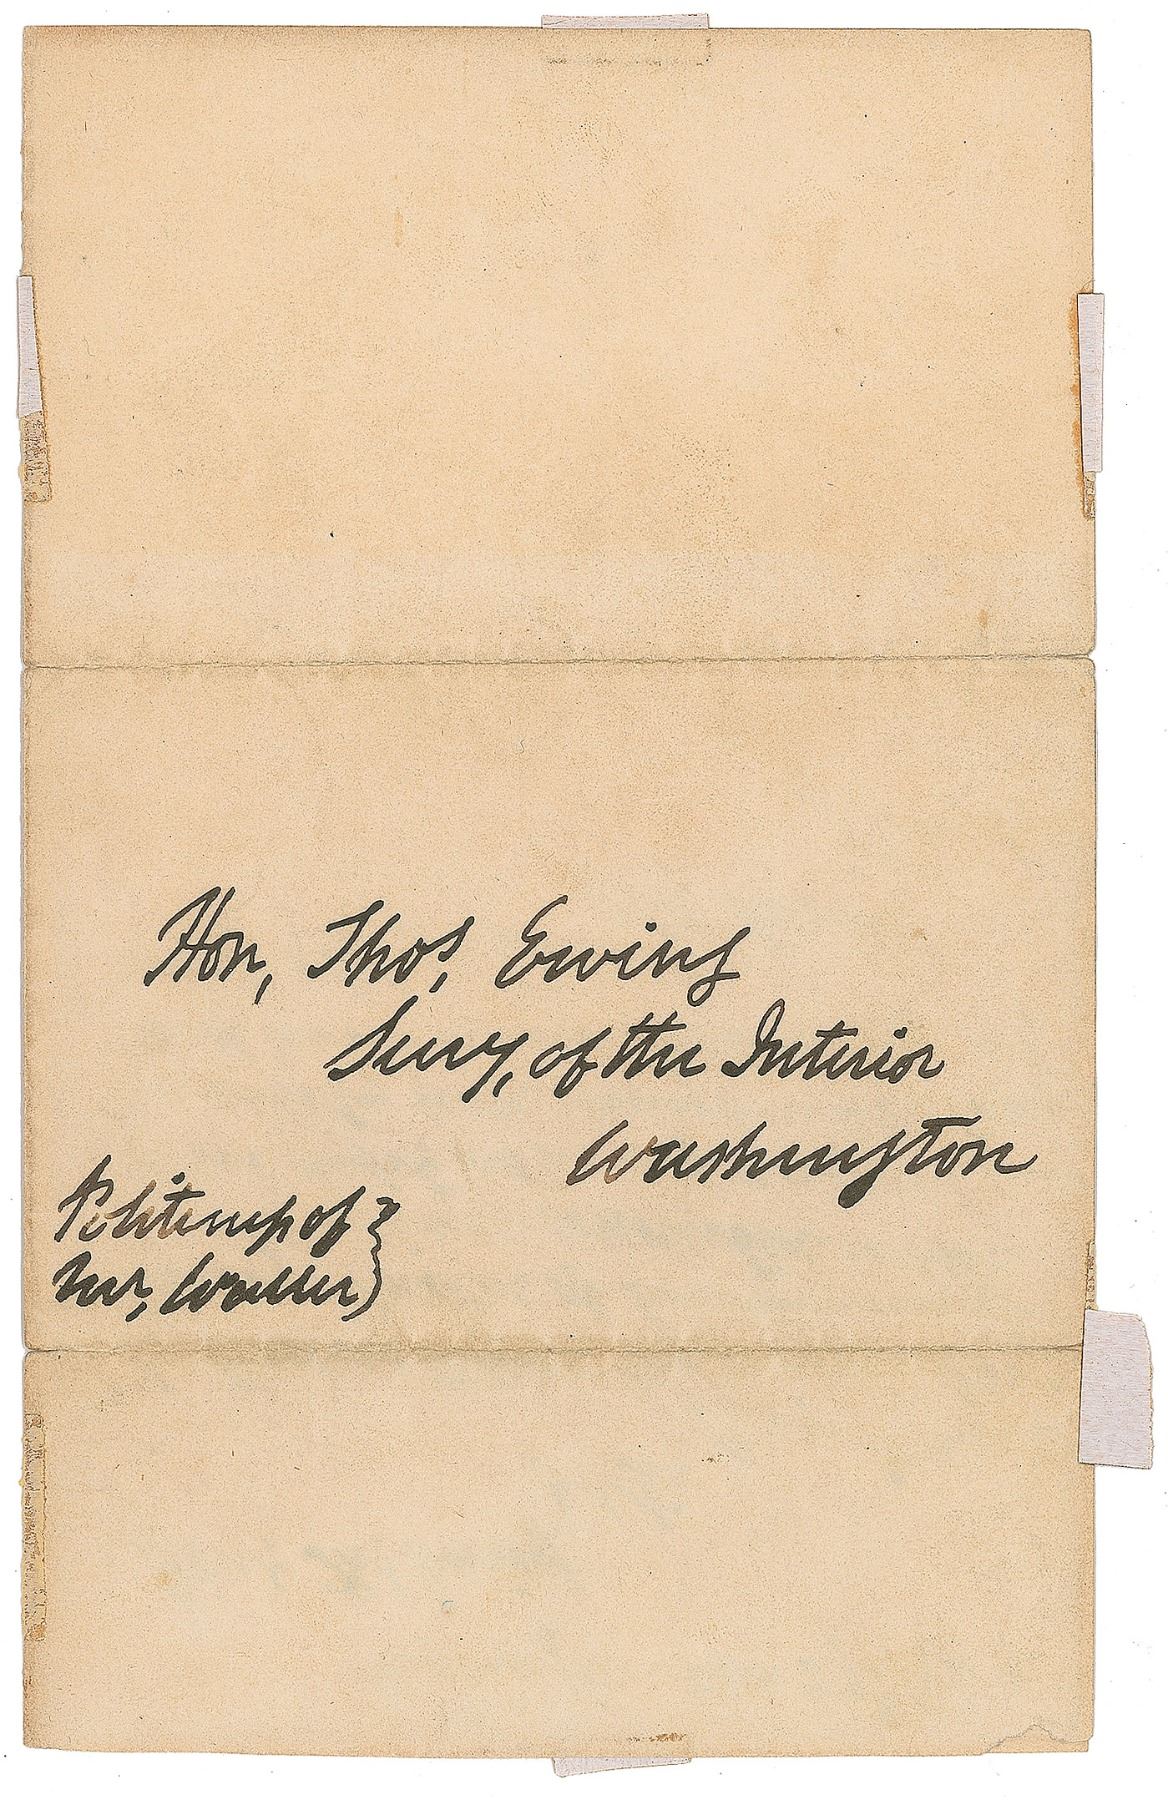 Hon, Thos, Ewing
Secry, of the Interior
Washington
Politeness of }
Mr, Waller }